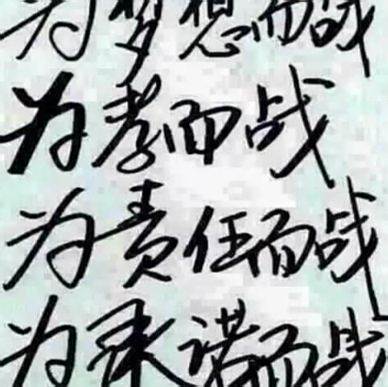 为梦想而战
为孝而战
为责任而战
为承诺而战